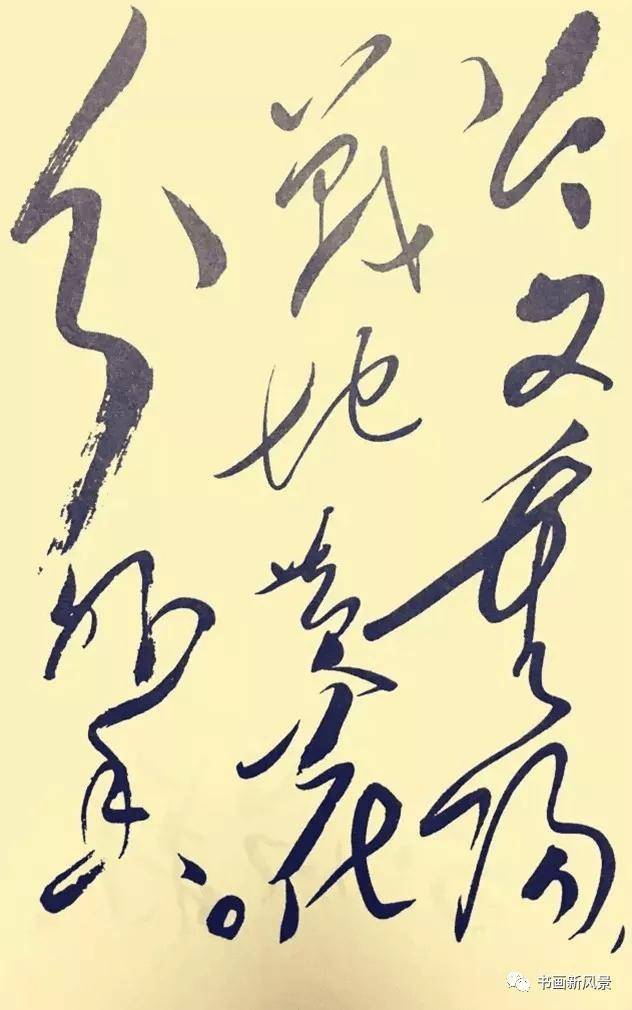 今又重陽，
戰地黄花
分外香。
书画新风景